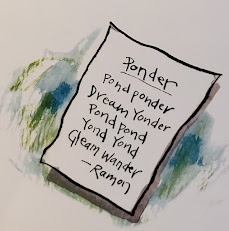 Ponder
Pond ponder
Dream Yonder
Pond Pond
Yond Yond
Gleam Wander
—Ramon